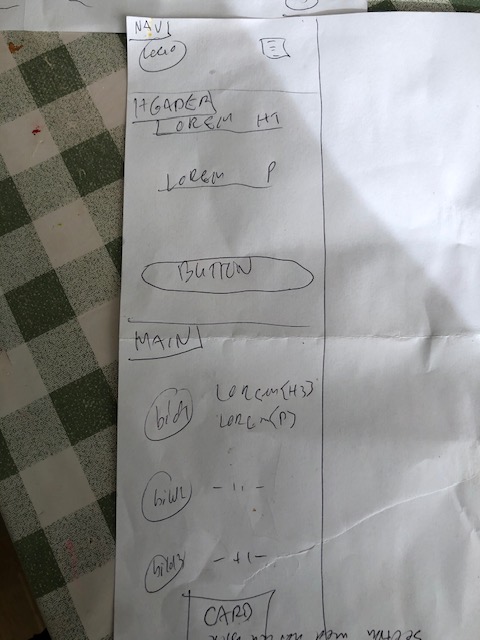 NAV
LOGO
HEADER
LOREM H1
LOREM P
BUTTON
MAIN
bild1 LOREM(H3)
LOREM(P)
bild2 - 11 -
bild3 - 11 -
CARD